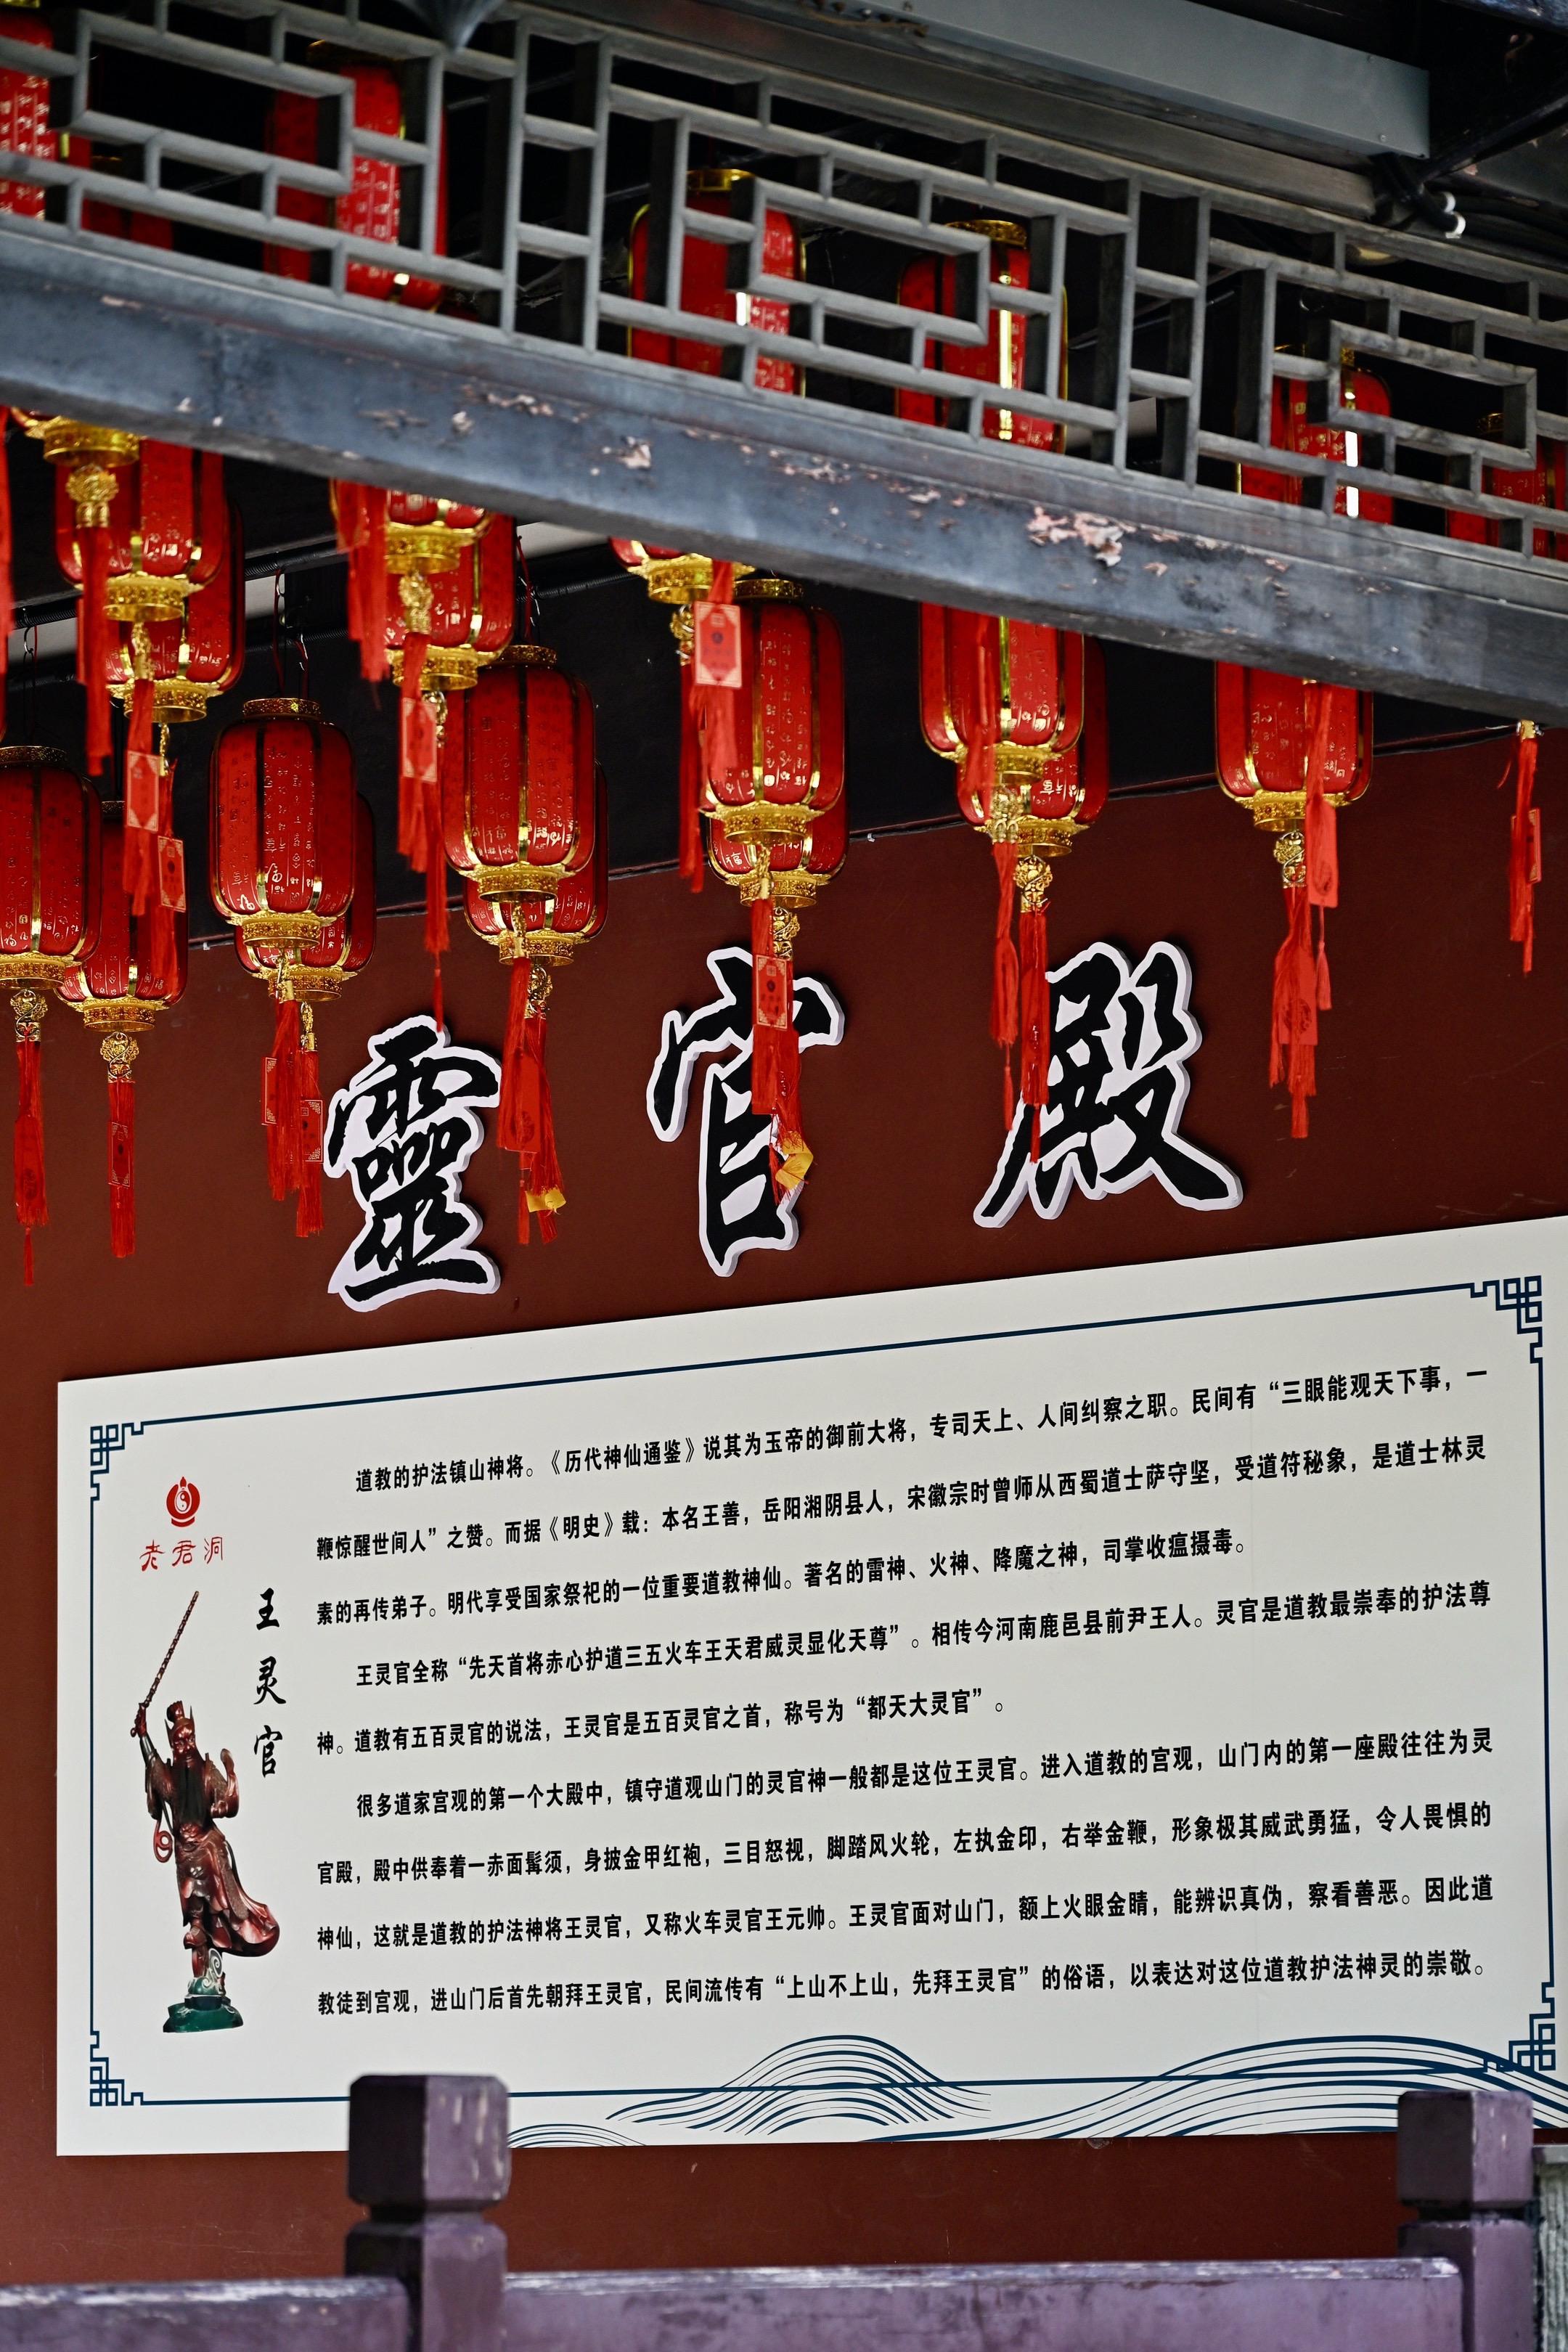 靈官殿
老君洞
王灵官
道教的护法镇山神将。《历代神仙通鉴》说其为玉帝的御前大将，专司天上、人间纠察之职。民间有“三眼能观天下事，一
鞭惊醒世间人”之赞。而据《明史》载：本名王善，岳阳湘阴县人，宋徽宗时曾师从西蜀道士萨守坚，受道符秘象，是道士林灵
素的再传弟子。明代享受国家祭祀的一位重要道教神仙。著名的雷神、火神、降魔之神，司掌收瘟摄毒。
王灵官全称“先天首将赤心护道三五火车王天君威灵显化天尊”。相传今河南鹿邑县前尹王人。灵官是道教最崇奉的护法尊
神。道教有五百灵官的说法，王灵官是五百灵官之首，称号为“都天大灵官”。
很多道家宫观的第一个大殿中，镇守道观山门的灵官神一般都是这位王灵官。进入道教的宫观，山门内的第一座殿往往为灵
官殿，殿中供奉着一赤面髯须，身披金甲红袍，三目怒视，脚踏风火轮，左执金印，右举金鞭，形象极其威武勇猛，令人畏惧的
神仙，这就是道教的护法神将王灵官，又称火车灵官王元帅。王灵官面对山门，额上火眼金睛，能辨识真伪，察看善恶。因此道
教徒到宫观，进山门后首先朝拜王灵官，民间流传有“上山不上山，先拜王灵官”的俗语，以表达对这位道教护法神灵的崇敬。